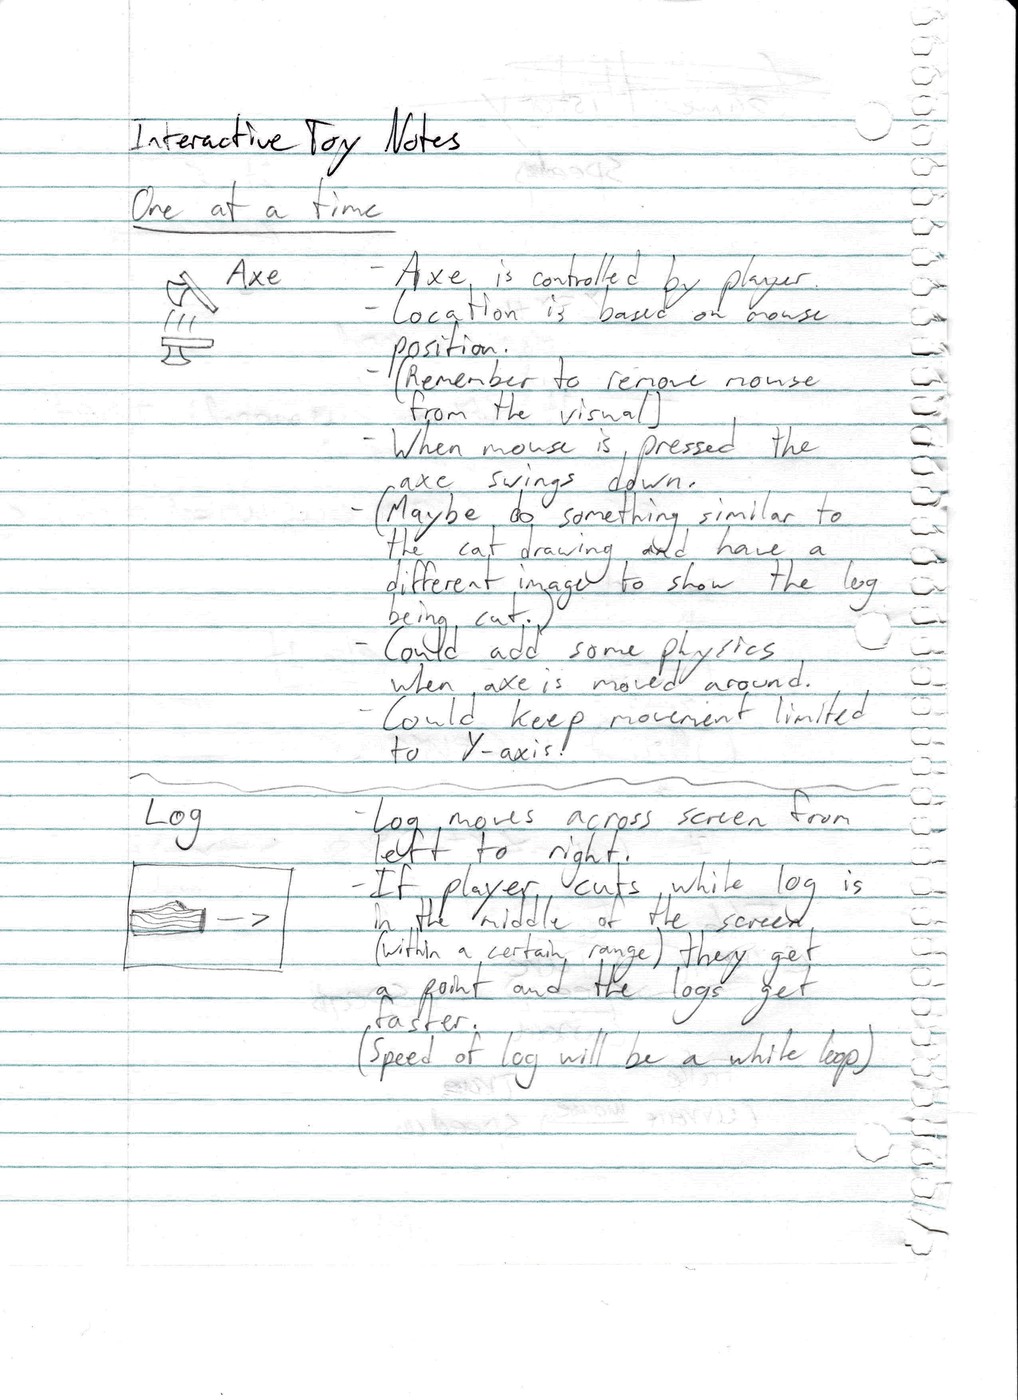 Interactive Toy Notes
One at a time
Axe
- Axe is controlled by player.
- Location is based on mouse
position.
- (Remember to remove mouse
from the visual)
- When mouse is pressed the
axe swings down.
- (Maybe do something similar to
the cat drawing and have a
different image to show the log
being cut.)
- Could add some physics
when axe is moved around.
- Could keep movement limited
to Y-axis!
Log
- Log moves across screen from
left to right.
- If player cuts while log is
in the middle of the screen
(within a certain range) they get
a point and the logs get
faster.
(Speed of log will be a while loop)